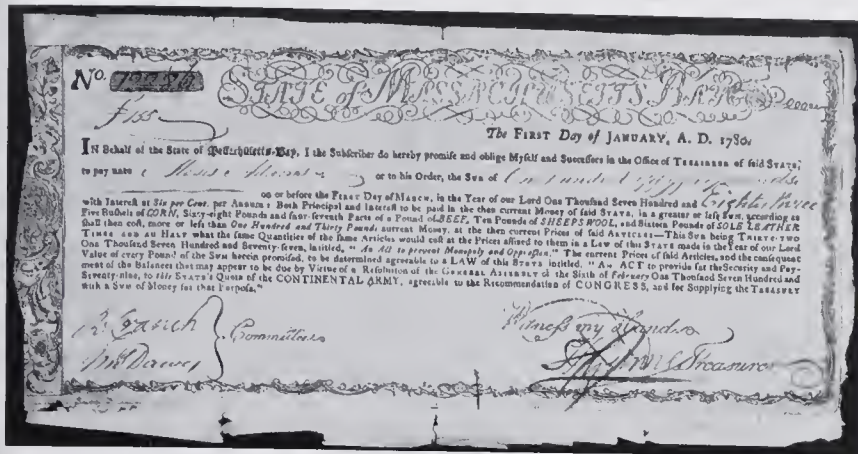 No.
STATE of MASSACHUSETTS BAY
The FIRST Day of JANUARY, A. D. 1780.
IN Behalf of the State of Massachusetts-Bay, I the Subscriber do hereby promise and oblige Myself and Successors in the Office of TREASURER of said STATE,
to pay unto
or to his Order, the Sum of
on or before the FIRST DAY of MARCH, in the Year of our Lord One Thousand Seven Hundred and Eighty three
with Interest at Six per Cent. per Annum: Both Principal and Interest to be paid in the then current Money of said STATE, in a greater or less SUM, according as
Five Bushels of CORN, Sixty-eight Pounds and four-seventh Parts of a Pound of BEEF, Ten Pounds of SHEEPS WOOL, and Sixteen Pounds of SOLE LEATHER
shall then cost, more or less than One Hundred and Thirty Pounds current Money, at the then current Prices of said ARTICLES—This SUM being THIRTY-TWO
TIMES AND AN HALF what the same Quantities of the same Articles would cost at the Prices affixed to them in a LAW of this STATE made in the Year of our Lord
One Thousand Seven Hundred and Seventy-seven, intitled, "An ACT to prevent Monopoly and Oppression." The current Prices of said Articles, and the consequent
Value of every Pound of the SUM herein promised, to be determined agreable to a LAW of this STATE intitled, "An ACT to provide for the Security and Pay-
ment of the Balances that may appear to be due by Virtue of a Resolution of the GENERAL ASSEMBLY of the Sixth of February One Thousand Seven Hundred and
Seventy-nine, to this STATE'S Quota of the CONTINENTAL ARMY, agreable to the Recommendation of CONGRESS, and for Supplying the TREASURY
with a SUM of Money for that Purpose."
R Cranch
Committee
Dawes
Witness my Hand
Treasurer